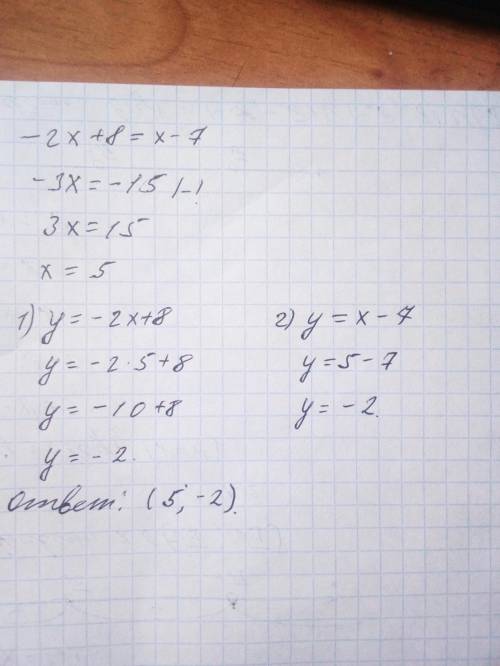 -2x+8=x-7
-3x=-15 |-1
3x=15
x=5
1) y=-2x+8
y=-2·5+8
y=-10+8
y=-2.
2) y=x-7
y=5-7
y=-2.
Ответ: (5;-2).